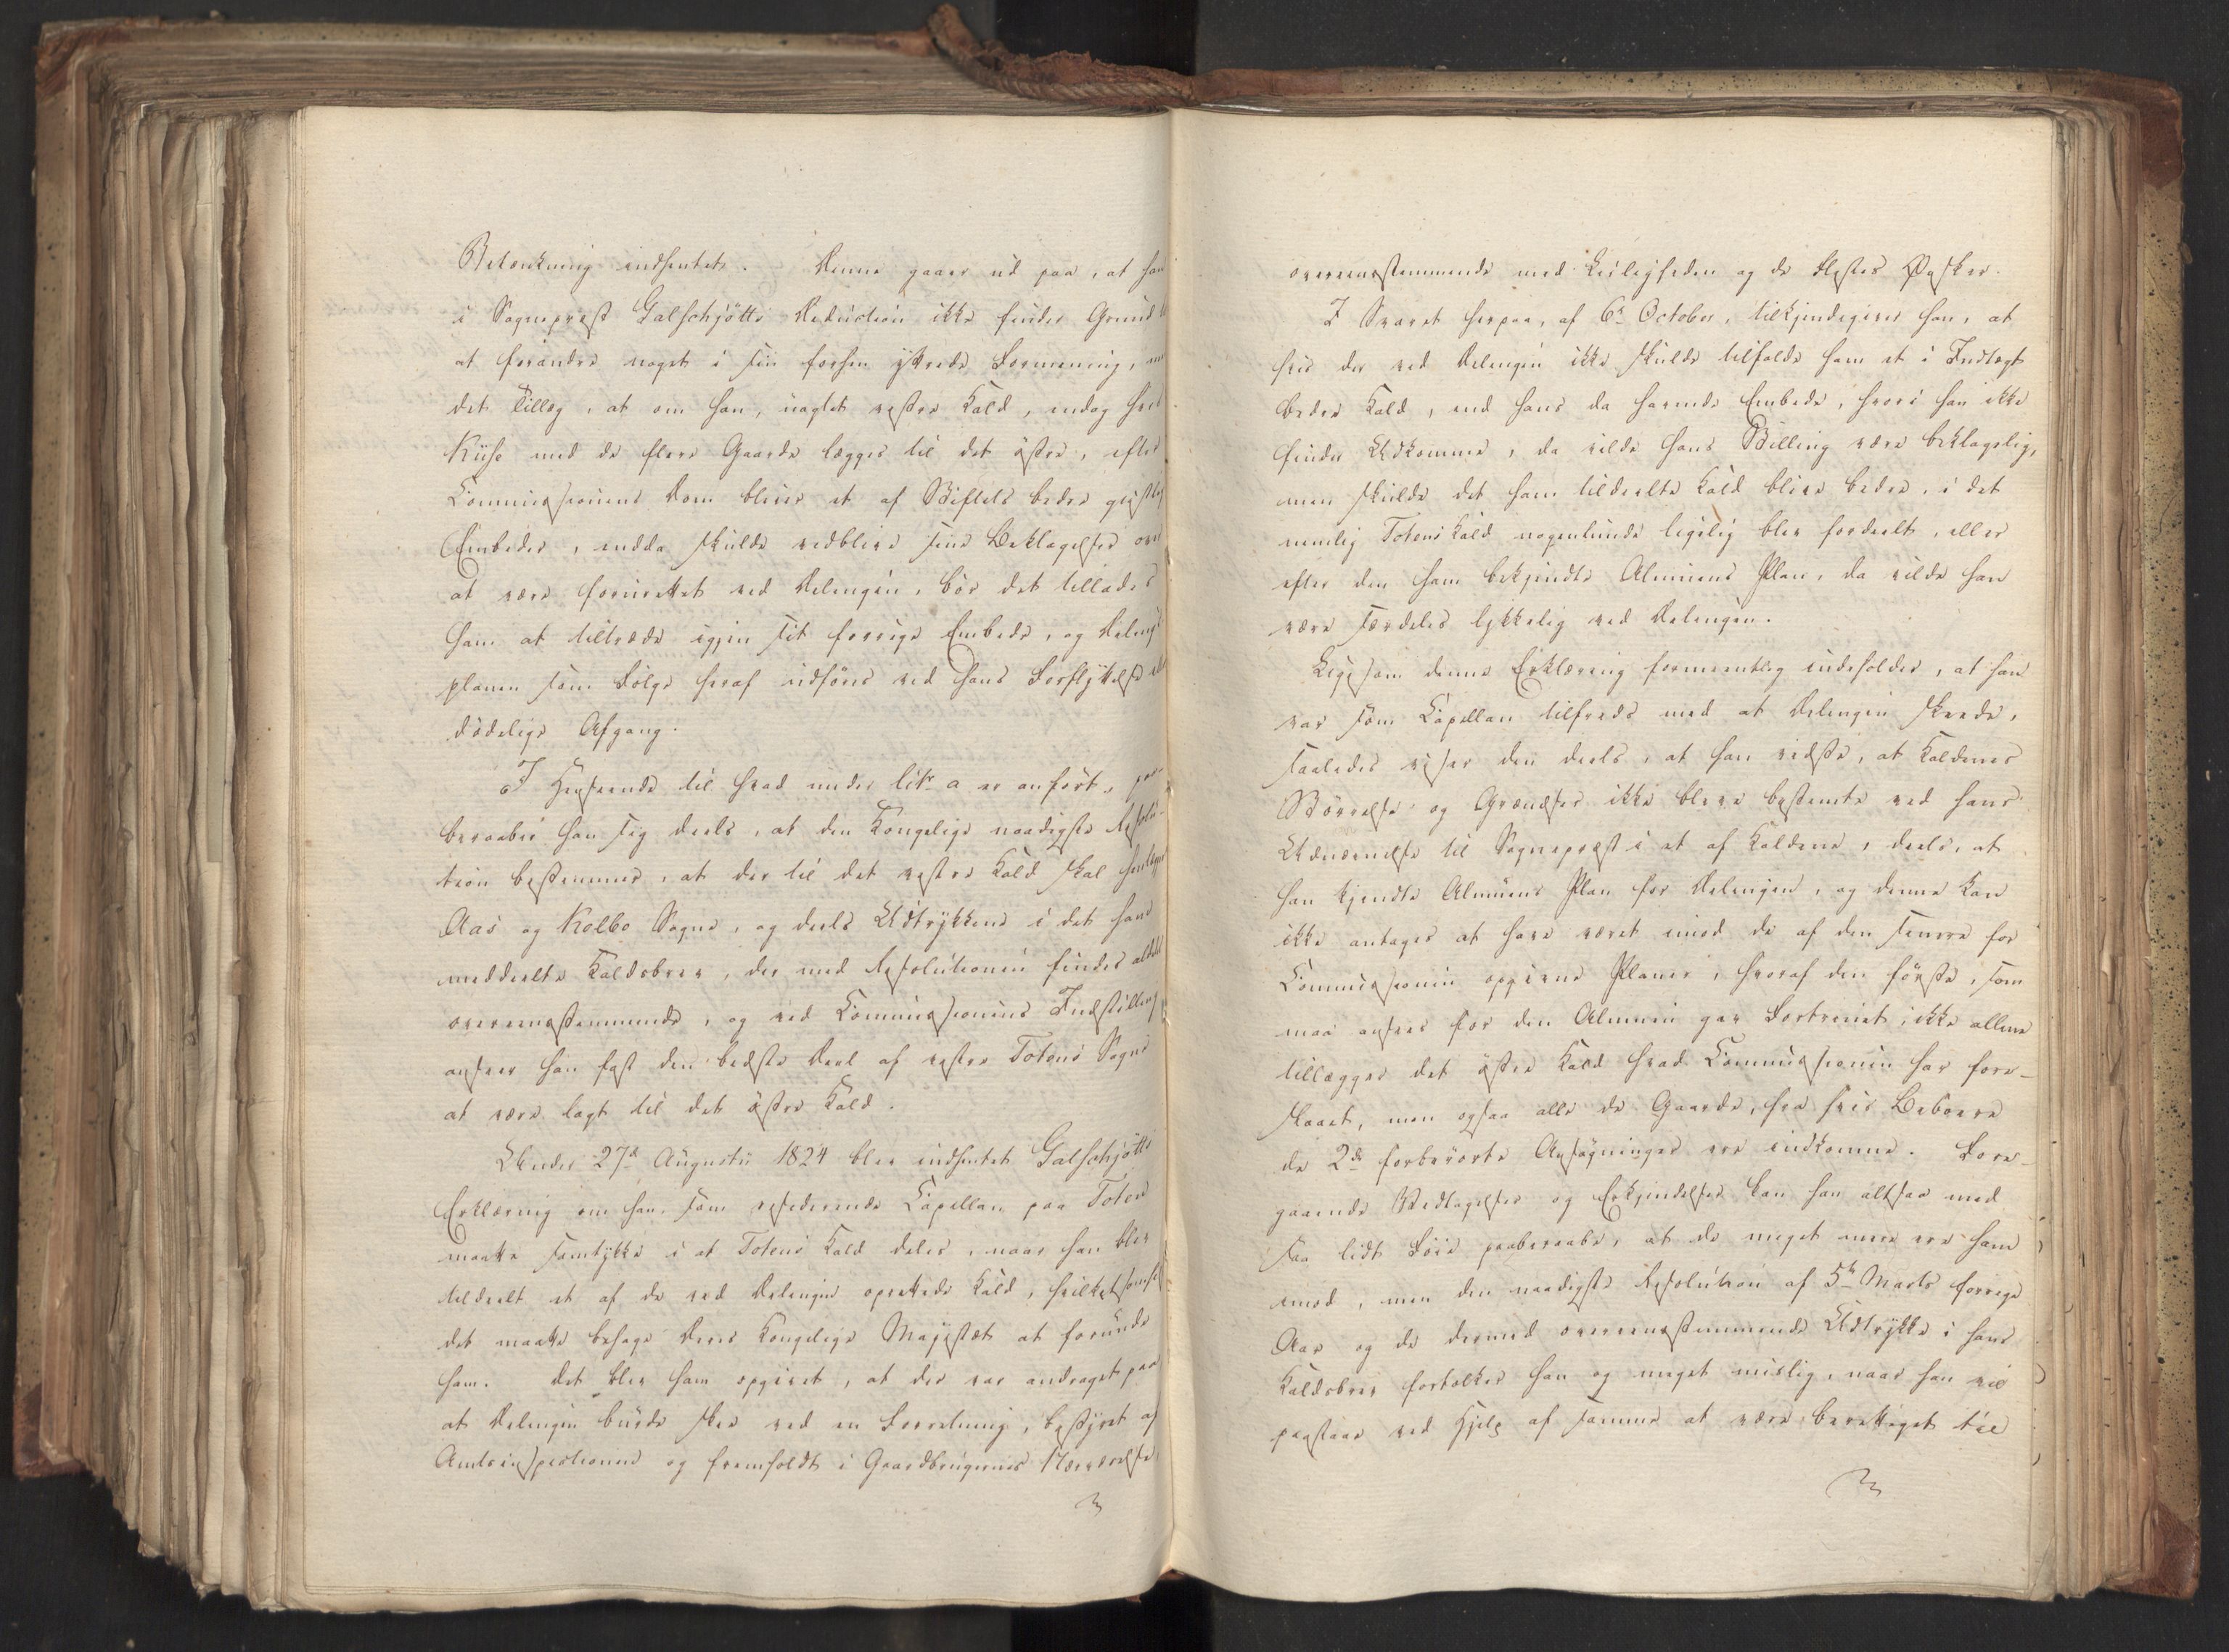 Betænkning indhentet. Denne gaaer ud paa, at han
i Sogneprest Galschjøtts Deduction ikke finder Grund til
at forandre noget i sin forhen yttrede Formening, med
det Tillæg, at om han, uagtet vestre Kald, endog hvis
Küse med de flere Gaarde lægges til det østre, efter
Commissionens Dom bliver et af Stiftets bedre geistlige
Embeder, endda skulde vedblive sine Beklagelser over
at være forurettet ved Delingen, bør det tillades
ham at tiltræde igjen sit forrige Embede, og Delings
planen som Følge heraf udføres ved hans Forflyttelse eller
dødelige Afgang.
I Henseende til hvad under litr a er anført, paa-
beraaber han sig deels, at den Kongelige naadigste Resolu-
tion bestemmer, at der til det vestre Kald skal henlægges
Aas og Kolbo Sogne, og deels Udtrykkene i det ham
meddeelte Kaldsbrev, der med Resolutionen findes aldeles
overeensstemmende, og ved Commissionens Indstilling
ansees han fast den bedste Deel af vestre Totens Sogn
at være lagt til det østre Kald.
Under 27de Augusti 1824 blev indhentet Galschjøtts
Erklæring om han, som residerende Capellan paa Toten
maatte samtykke i at Totens Kald deles, naar han blev
tildeelt et af de ved Delingen oprettede Kald, hvilketsomhelst
det maatte behage Deres Kongelige Majestæt at forunde
ham. Det blev ham opgivet, at der var andraget paa
at Delingen burde skee ved en Forretning, bestyret af
Amtsinspectionen og fremholdt i Gaardbrugernes Nærværelse
overeensstemmende med Leiligheden og de flestes Ønsker.
I Svaret herpaa, af 6te October, tilkjendegiver han, at
hvis der ved Delingen ikke skulde tilfalde ham et i Indtægt
bedre Kald, end hans da havende Embede, hvori han ikke
finder Udkomme, da vilde hans Stilling være beklagelig,
men skulde det ham tildeelte Kald blive bedre, i det
nemlig Totens Kald nogenlunde ligelig blev fordeelt, eller
efter den ham bekjendte Almuens Plan, da vilde han
være særdeles lykkelig ved Delingen.
Ligesom denne Erklæring formeentlig indeholder, at han
var som Capellan tilfreds med at Delingen skeede,
saaledes viser den deels, at han vidste, at Kaldenes
Størrelse og Grændser ikke bleve bestemte ved hans
Udnævnelse til Sogneprest i et af Kaldene, deels, at
han kjendte Almuens Plan for Delingen, og denne kan
ikke antages at have været imod de af den senere for
Commissionen opgivne Planer, hvoraf den første, som
maa ansees for den Almuen gav Fortrinet, ikke allene
tillægger det østre Kald hvad Commissionen har fore-
slaaet, men ogsaa alle de Gaarde, fra hvis Beboere
de 2de forberørte Ansøgninger ere indkomne. Fore-
gaaende Vedtagelser og Erkjendelser kan han altsaa med
saa lidt Føie paaberaabe, at de meget mere ere ham
imod, men den naadigste Resolution af 5te Marts forrige
Aar og de dermed overeensstemmende Udtrykke i hans
Kaldsbrev fortolker han og meget mislig, naar han vil
paastaae ved Hjelp af samme at være berettiget til